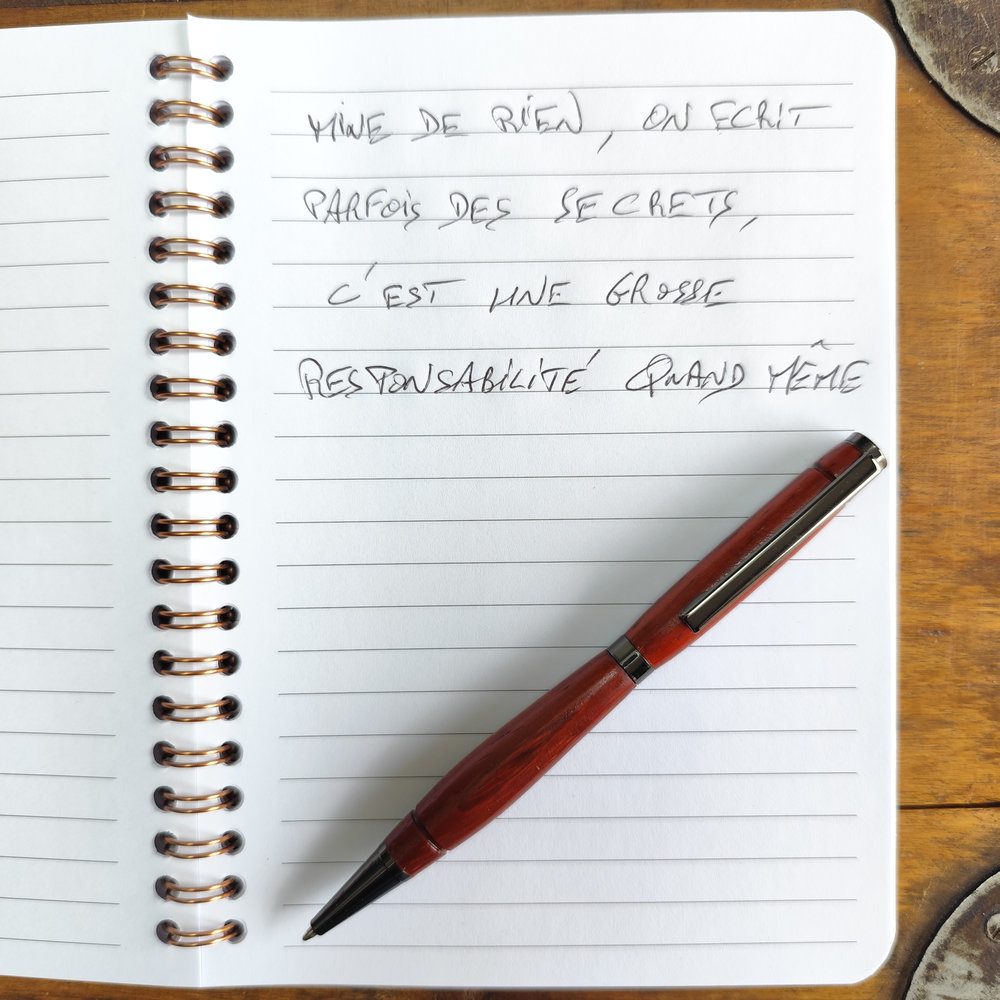 MINE DE RIEN, ON ECRIT
PARFOIS DES SECRETS,
C'EST UNE GROSSE
RESPONSABILITÉ QUAND MÊME